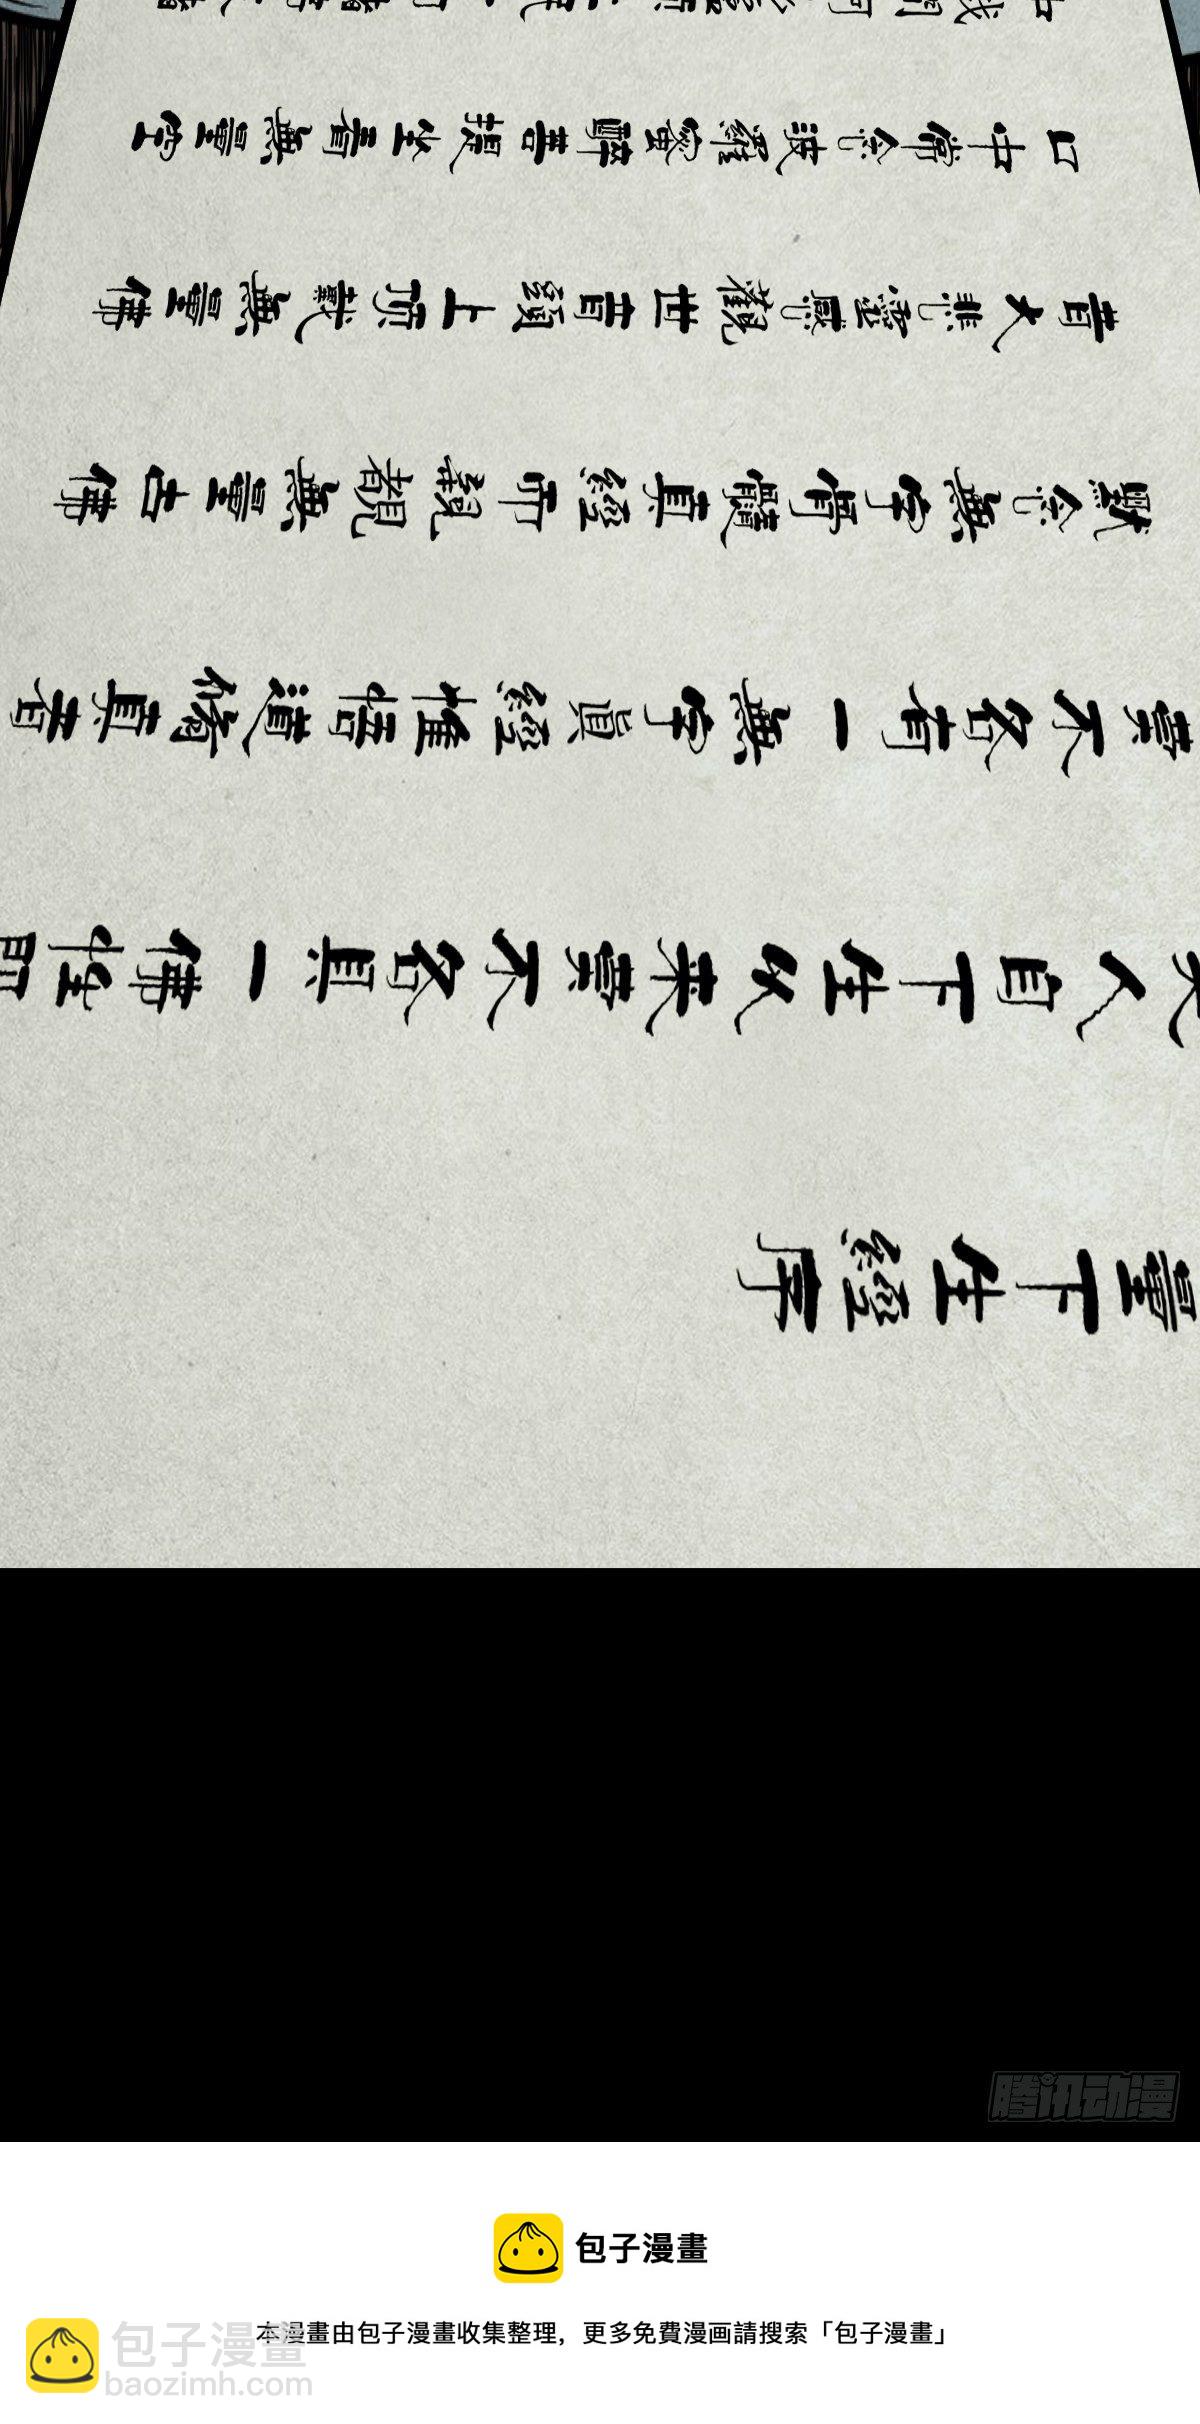 量下生經序
人自下生以來莫不各具一佛性即
莫不各有一無字真經惟悟道脩真者
默念無字骨髓真經而親覩無量古佛
昔大悲靈感觀世音頭上頂戴無量佛
口中常念波羅蜜醉菩提坐看無量空
腾讯动漫
包子漫畫
本漫畫由包子漫畫收集整理，更多免費漫画請搜索「包子漫畫」
包子漫畫
baozimh.com